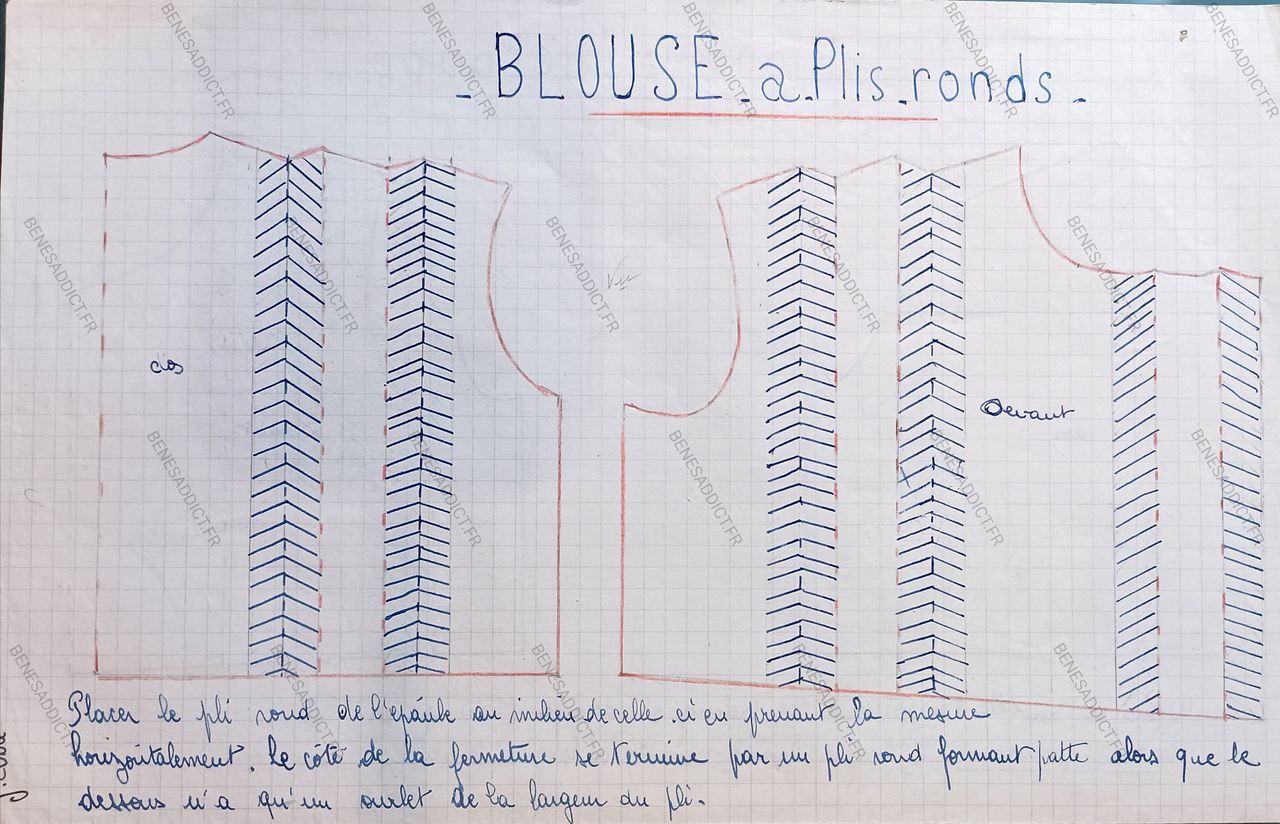 - BLOUSE - a - Plis - ronds -
dos
Devant
Placer le pli rond de l'epaule au milieu de celle. ci en prenant la mesure
horizontalement. Le côté de la fermeture se termine par un pli rond formant patte alors que le
dessous n'a qu'un ourlet de la largeur du pli.
BENESADDICT.FR